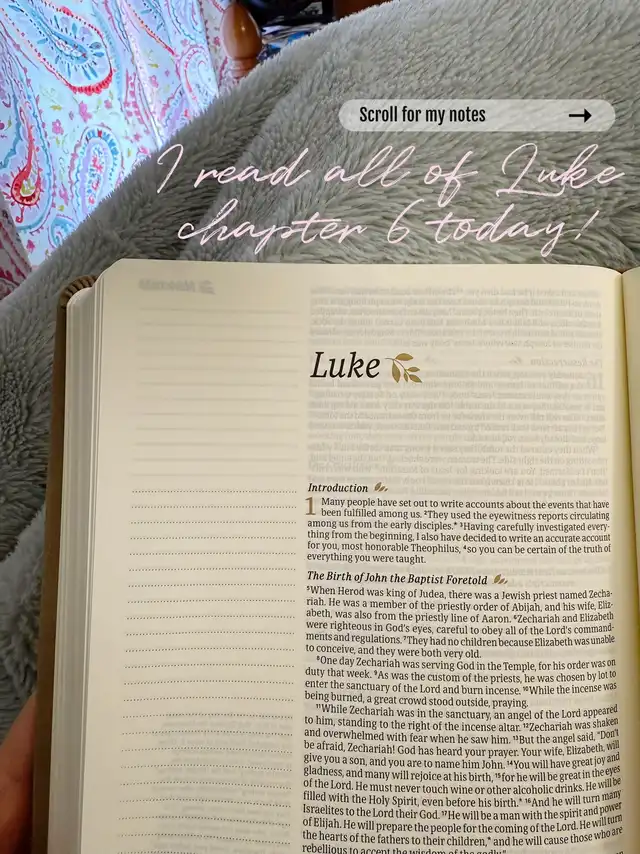 Scroll for my notes
I read all of Luke
chapter 6 today!
Luke
Introduction
1 Many people have set out to write accounts about the events that have
been fulfilled among us. ²They used the eyewitness reports circulating
among us from the early disciples.* ³Having carefully investigated every-
thing from the beginning, I also have decided to write an accurate account
for you, most honorable Theophilus, ⁴so you can be certain of the truth of
everything you were taught.
The Birth of John the Baptist Foretold
⁵When Herod was king of Judea, there was a Jewish priest named Zecha-
riah. He was a member of the priestly order of Abijah, and his wife, Eliz-
abeth, was also from the priestly line of Aaron. ⁶Zechariah and Elizabeth
were righteous in God's eyes, careful to obey all of the Lord's command-
ments and regulations. ⁷They had no children because Elizabeth was unable
to conceive, and they were both very old.
⁸One day Zechariah was serving God in the Temple, for his order was on
duty that week. ⁹As was the custom of the priests, he was chosen by lot to
enter the sanctuary of the Lord and burn incense. ¹⁰While the incense was
being burned, a great crowd stood outside, praying.
¹¹While Zechariah was in the sanctuary, an angel of the Lord appeared
to him, standing to the right of the incense altar. ¹²Zechariah was shaken
and overwhelmed with fear when he saw him. ¹³But the angel said, "Don't
be afraid, Zechariah! God has heard your prayer. Your wife, Elizabeth, will
give you a son, and you are to name him John. ¹⁴You will have great joy and
gladness, and many will rejoice at his birth, ¹⁵for he will be great in the eyes
of the Lord. He must never touch wine or other alcoholic drinks. He will be
filled with the Holy Spirit, even before his birth.* ¹⁶And he will turn many
Israelites to the Lord their God. ¹⁷He will be a man with the spirit and power
of Elijah. He will prepare the people for the coming of the Lord. He will turn
the hearts of the fathers to their children,* and he will cause those who are
rebellious to accept the wisdom of the godly."